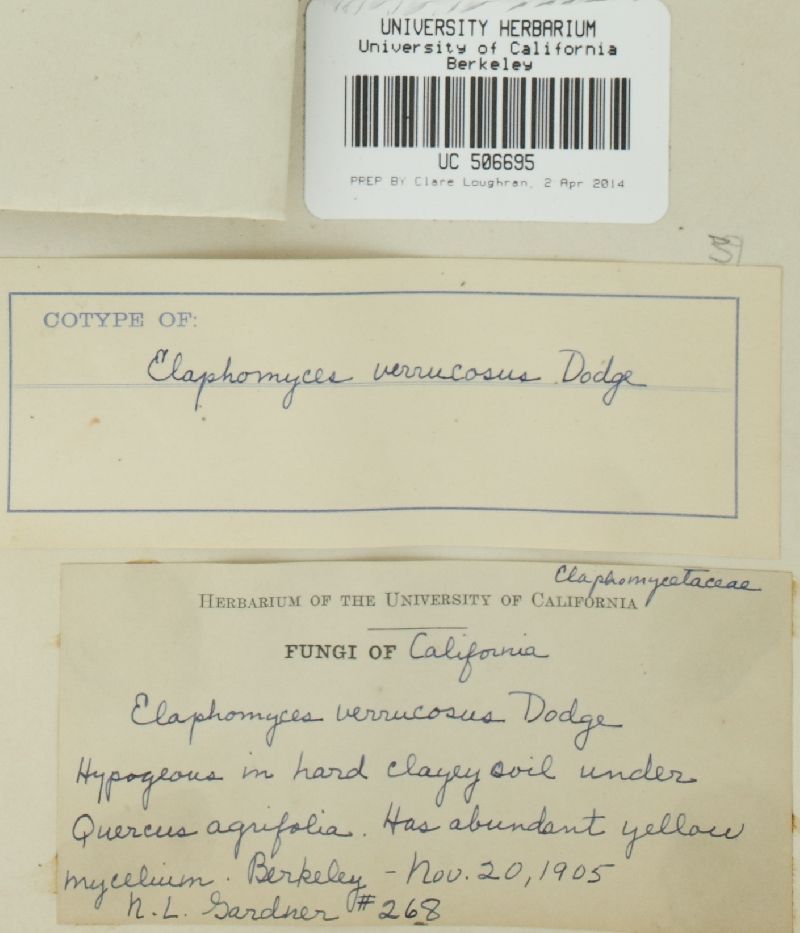 UNIVERSITY HERBARIUM
University of California
Berkeley
UC 506695
PREP BY Clare Loughran, 2 Apr 2014
COTYPE OF:
Elaphomyces verrucosus Dodge
Elaphomycetaceae
HERBARIUM OF THE UNIVERSITY OF CALIFORNIA
FUNGI OF California
Elaphomyces verrucosus Dodge
Hypogeous in hard clayey soil under
Quercus agrifolia. Has abundant yellow
mycelium. Berkeley - Nov. 20, 1905
N. L. Gardner #268